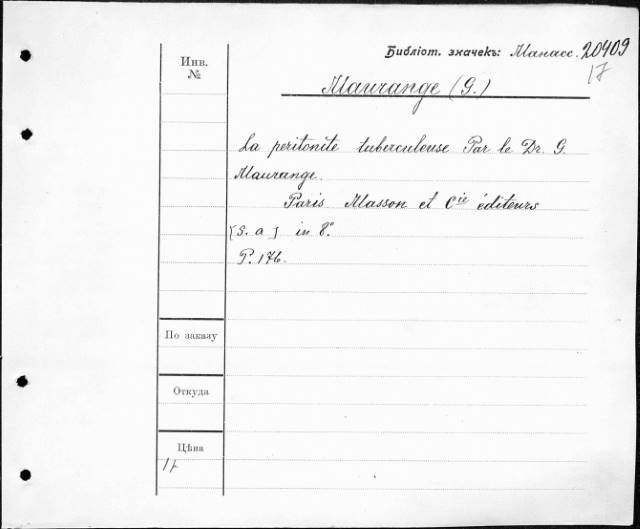 Библіот. значекъ: Манасс. 20409
17
Инв.
№
Maurange (G.)
La peritonite tuberculeuse Par le Dr. G.
Maurange.
Paris Masson et Cie éditeurs
[s. a] in 8°
P. 176.
По заказу
Откуда
Цѣна